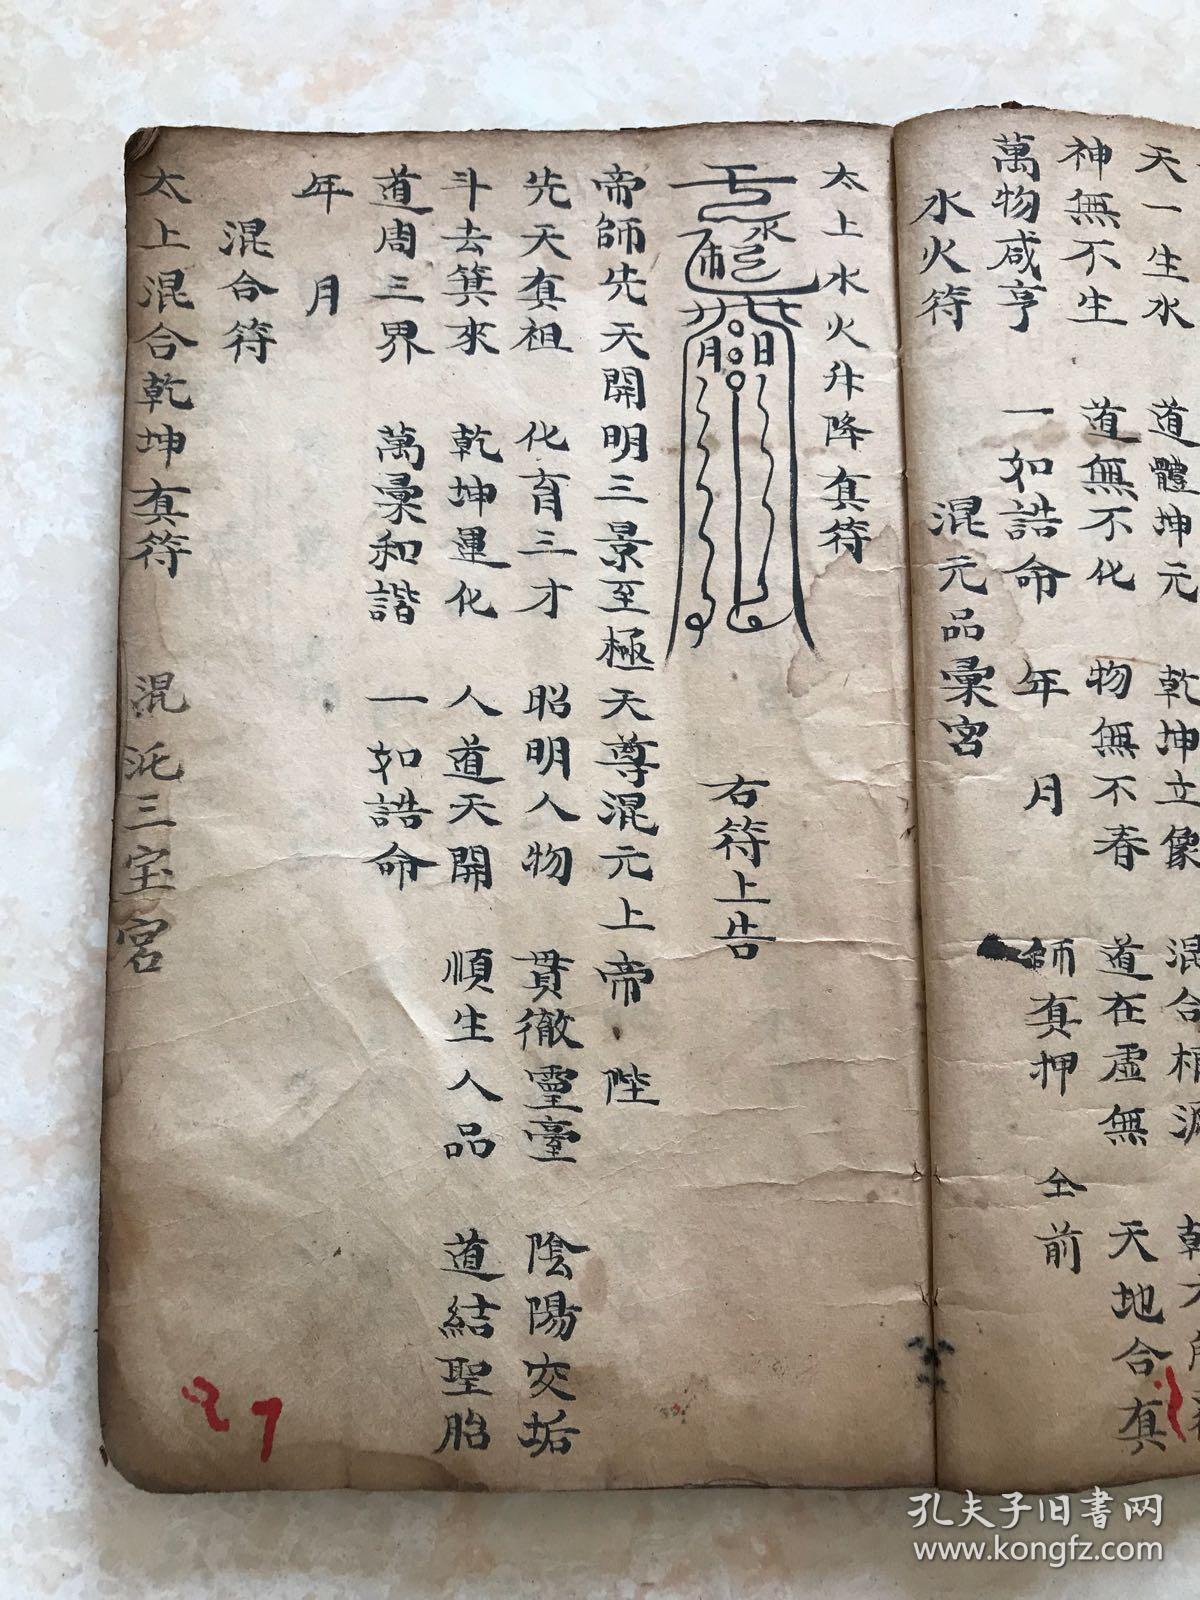 天一生水 道體坤元 乾坤立像 混合
神無不生 道無不化 物無不春 道在虛無 天地合真
萬物咸亨 一如誥命 年 月 師真押 仝前
水火符 混元品彙宮
太上水火升降真符
右符上告
帝師先天開明三景至極天尊混元上帝 陛
先天真祖 化育三才 昭明人物 貫徹靈臺 陰陽交垢
斗去箕來 乾坤運化 人道天開 順生人品 道結聖胎
道周三界 萬彙和諧 一如誥命
年 月
混合符
太上混合乾坤真符 混沌三宝宮
27
孔夫子旧書网
www.kongfz.com